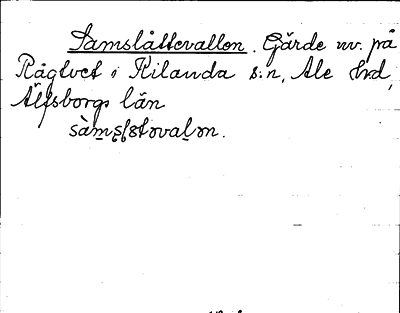 Samslåttevallen. Gärde nv. på
Rågtvet i Kilanda s:n, Ale hrd,
Älfsborgs län